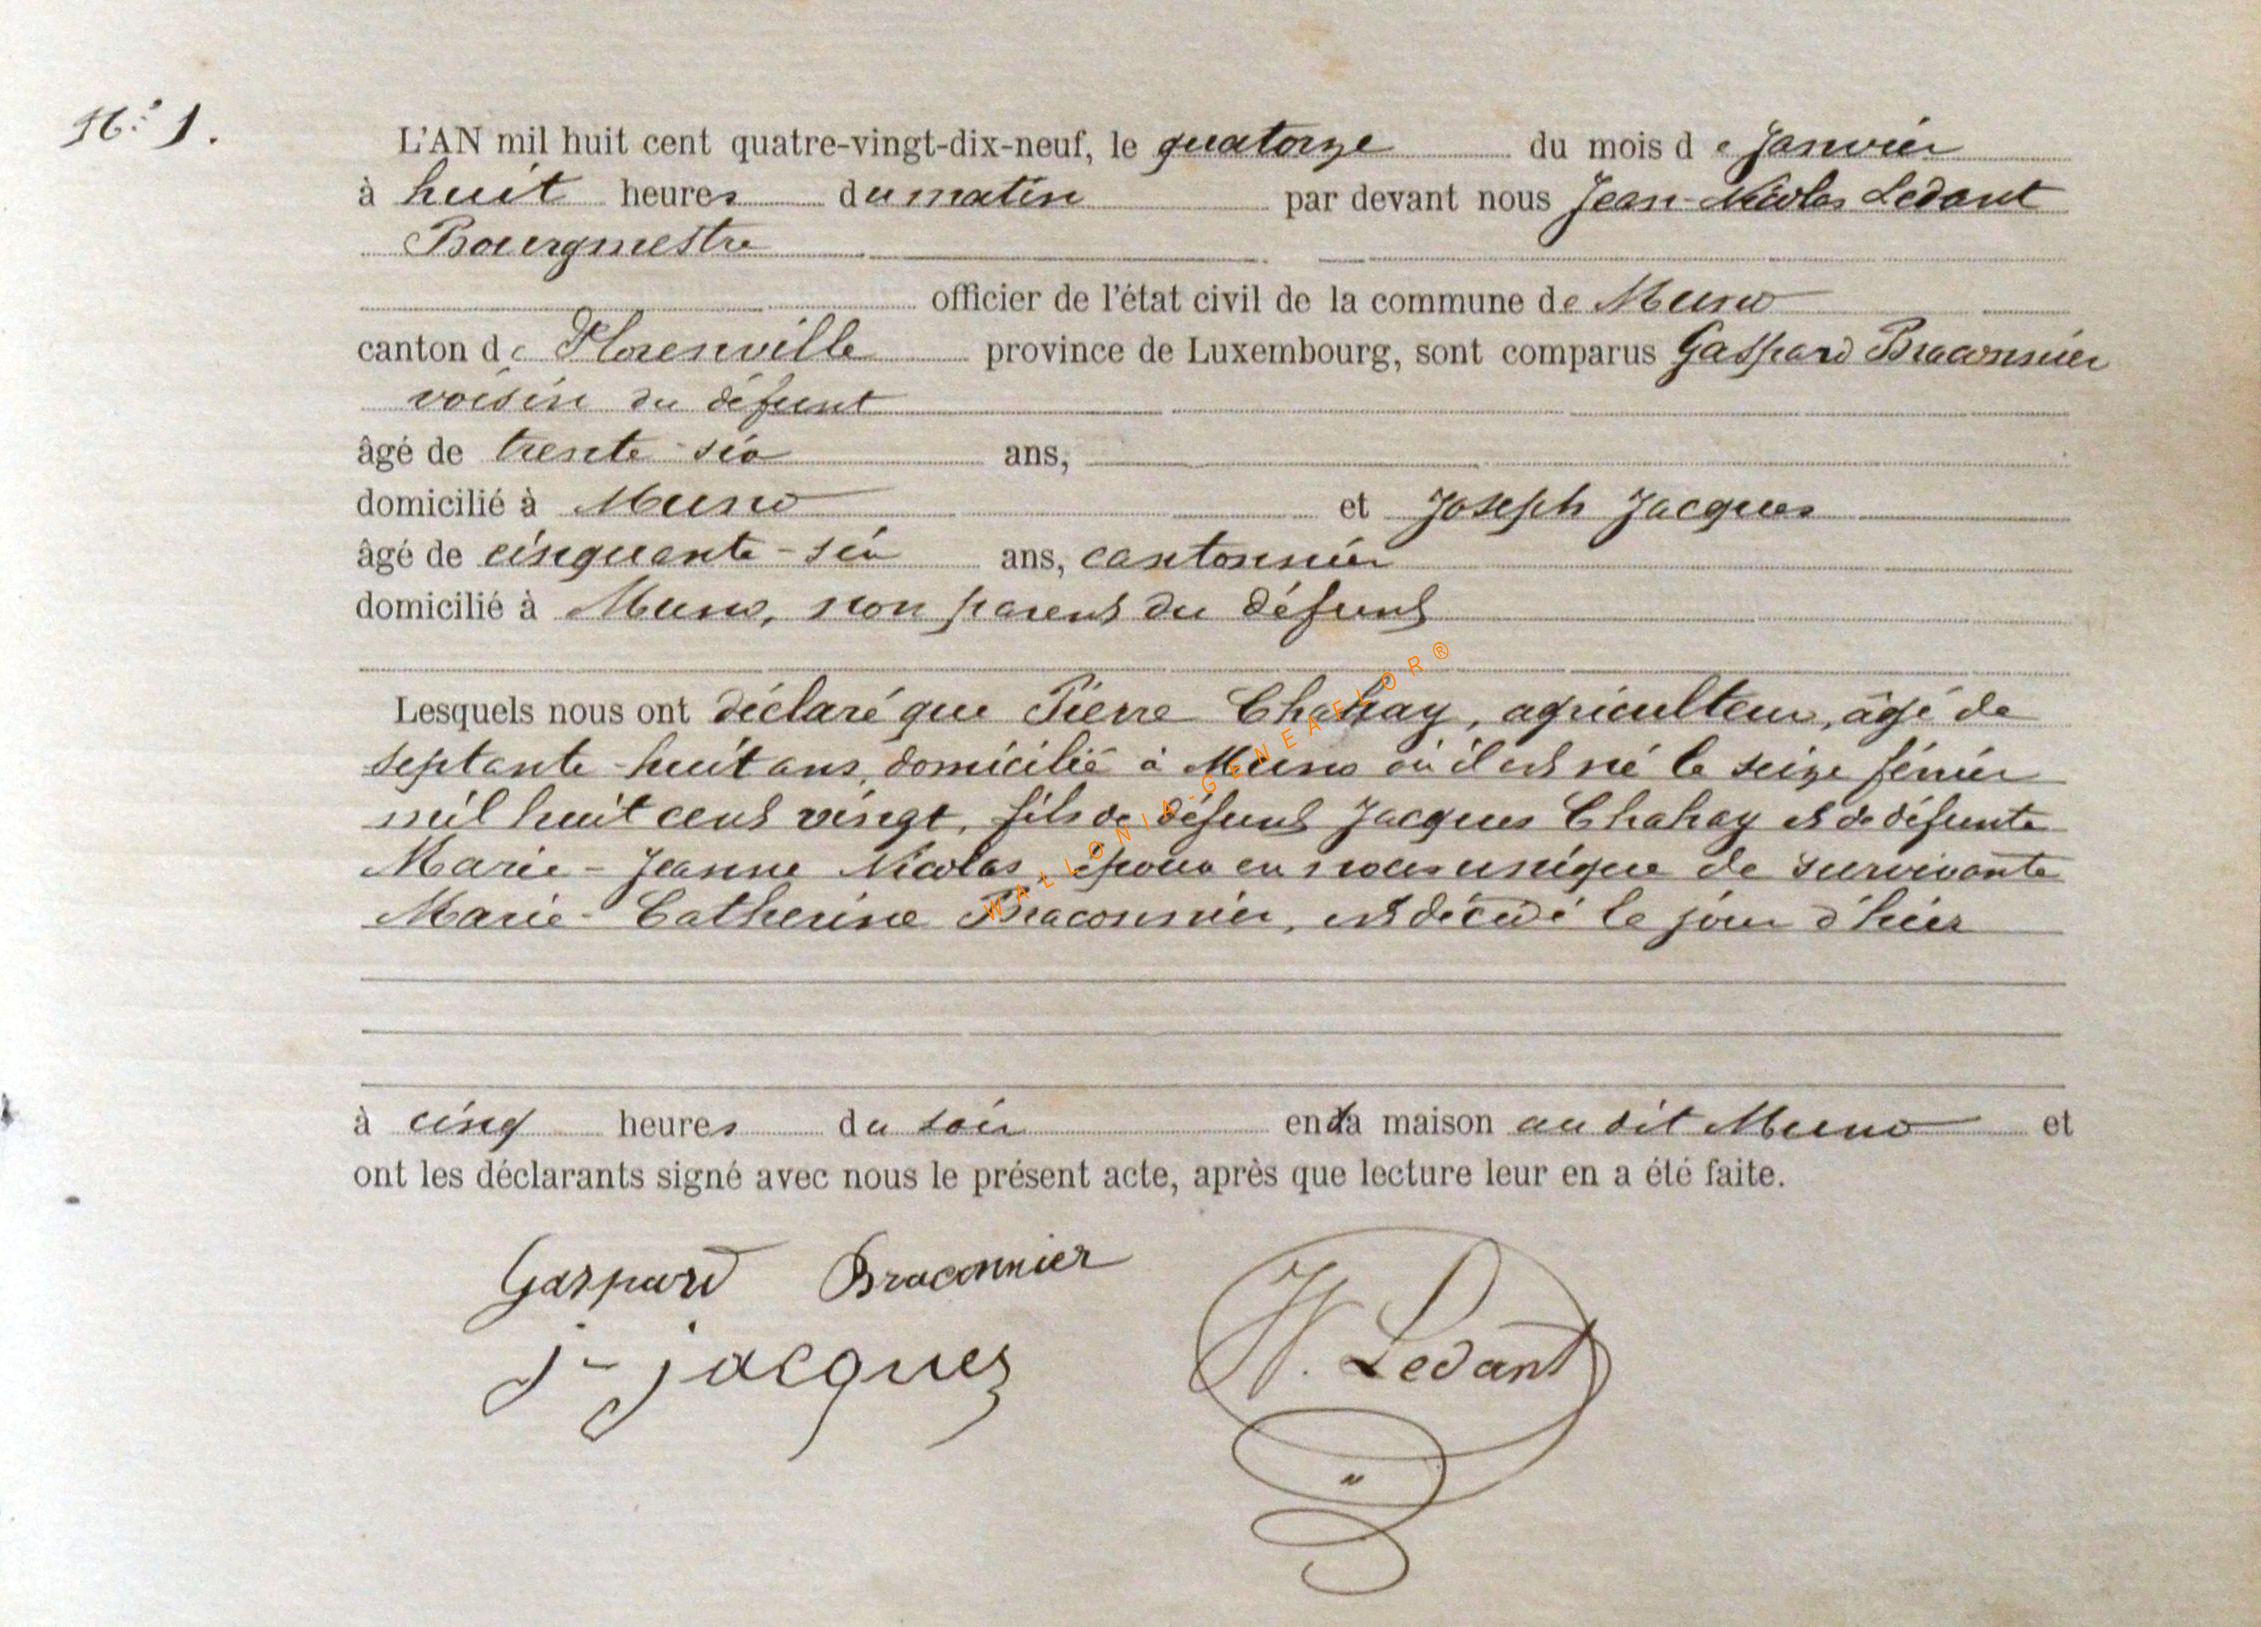 N.° 1.
L'AN mil huit cent quatre-vingt-dix-neuf, le quatorze du mois de Janvier
à huit heures du matin par devant nous Jean-Nicolas Ledant
Bourgmestre
officier de l'état civil de la commune de Muno
canton de Florenville province de Luxembourg, sont comparus Gaspard Braconnier
voisin du défunt
âgé de trente-six ans,
domicilié à Muno et Joseph Jacques
âgé de cinquante-six ans, cantonnier
domicilié à Muno, non parent du défunt
Lesquels nous ont déclaré que Pierre Chahay, agriculteur, âgé de
septante-huit ans, domicilié à Muno où il est né le seize février
mil huit cent vingt, fils de défunt Jacques Chahay et de défunte
Marie-Jeanne Nicolas, époux en noces unique de survivante
Marie-Catherine Braconnier, est décédé le jour d'hier
à cinq heures du soir en sa maison au dit Muno et
ont les déclarants signé avec nous le présent acte, après que lecture leur en a été faite.
Gaspard Braconnier
J-Jacques
N. Ledant
WALLONIA-GENEAFLOR®